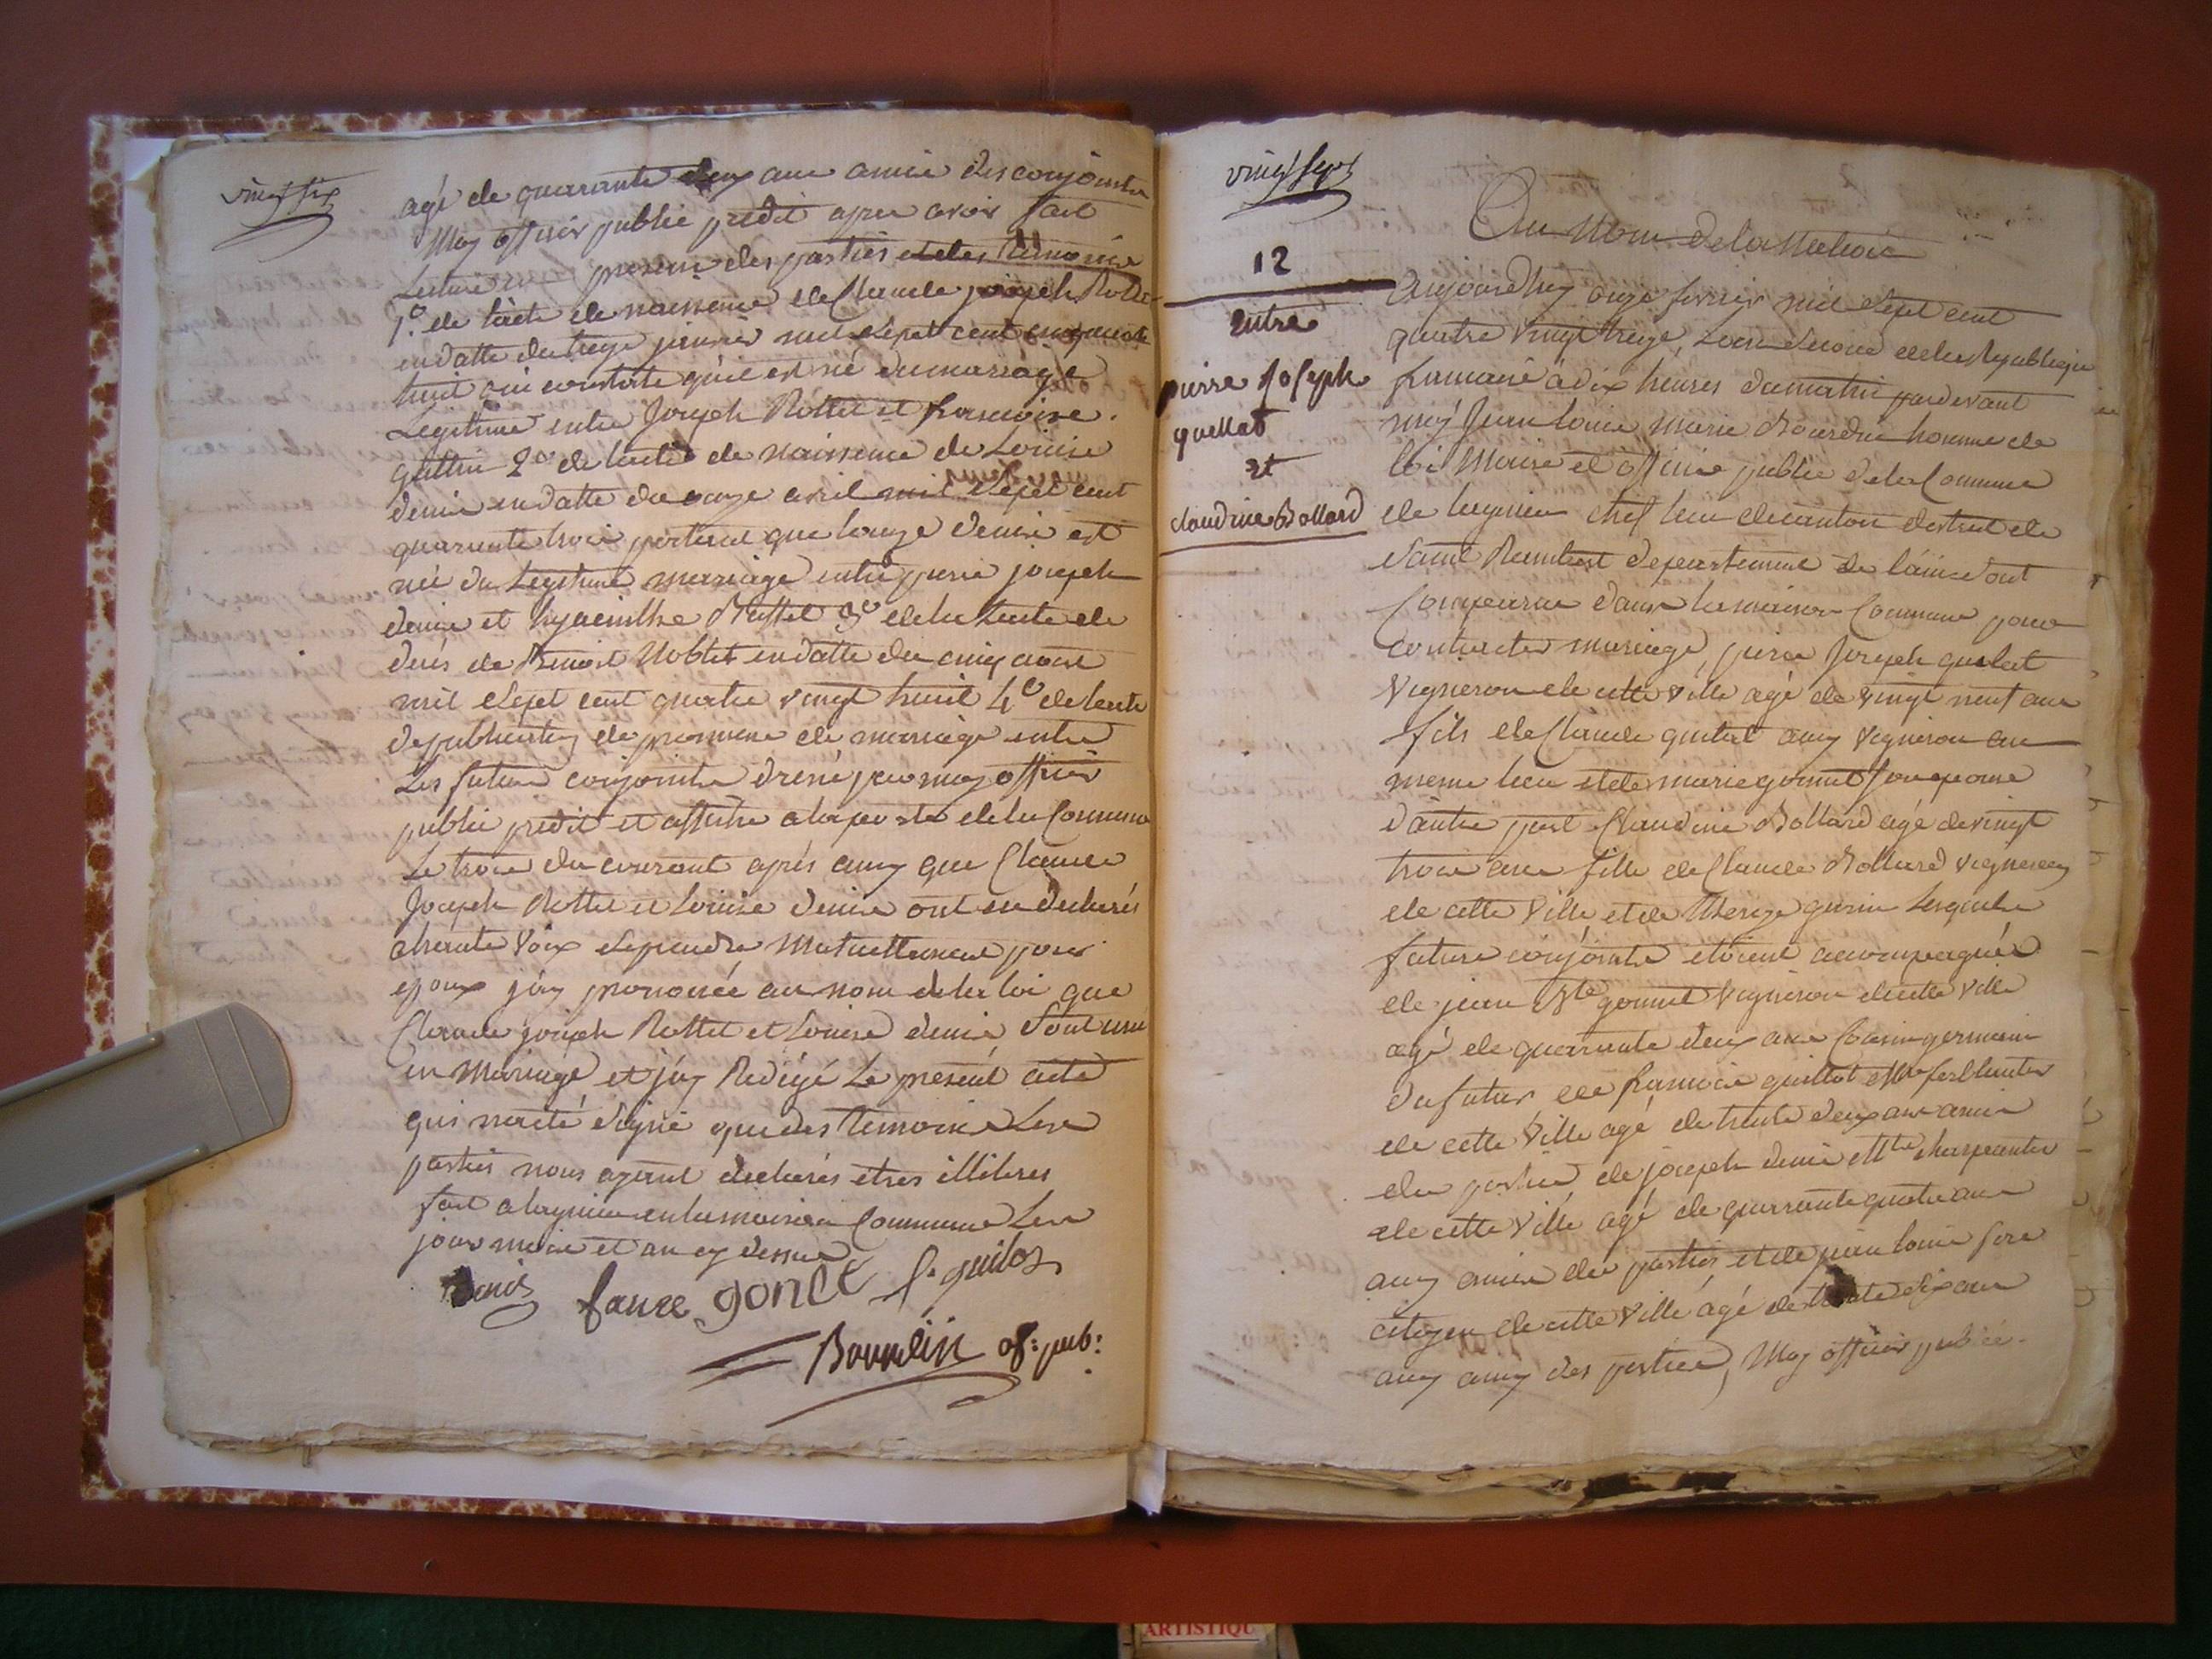 vingt six
agé de quarante deux ans amis des conjoints
Moy officier public predit apres avoir fait
Lecture en presence des parties et des temoins
1.º de lacte de naissance de Claude joseph Rottet
en datte du treze janvier mil sept cent cinquante
huit qui constate qu'il est né du mariage
Legitime entre Joseph Rottet et francoise
2º de lacte de naissance de Louise
denis en datte du onze avril mil sept cent
quarante trois portant que louize denis est
née du Legitime mariage entre pierre joseph
denis et hyacinthe 3º de lacte de
deces de Benoit Noblet en datte du cinq aoust
mil sept cent quatre vingt huit 4º de lacte
de publication de promesse de mariage entre
Les futurs conjoints dressé par moy officier
public predit et affiché a la porte de la Commune
Le trois du courant après aussy que Claude
Joseph Rottet et Louise denis ont eu declarés
a haute voix se prendre Mutuellement pour
epoux j'ay prononcé au nom de la loi que
Claude joseph Rottet et Louise denis sont unis
en Mariage et j'ay Redigé Le present acte
qui n'a eté signé que des temoins Les
parties nous ayant declarés etres illitérés
fait a lagnieu en la maison Commune Les
jour mois et an cy dessus
Denis favre gonet f. guilot
Bourdin of: pub:
vingt sept
12
entre
pierre Joseph
quellat
et
claudine Bollard
Au Nom de la Nation
Aujourdhuy onze fevrier mil sept cent
quatre vingt treize, Lan second de la Republique
francaise à dix heures du matin pardevant
moy Jean louis marie Bourdin homme de
loi Maire et officier public de la Commune
de lagnieu chef lieu de canton district de
saint Rambert departement de l'ain sont
Comparus dans la maison Commune pour
contracter mariage, pierre Joseph quelat
vigneron de cette ville agé de vingt neuf ans
fils de Claude quelat aussy vigneron au
meme lieu et de marie gonnet d'une part
d'autre part Claudine Bollard agé de vingt
trois ans fille de Claude Bollard vigneron
de cette ville et de Thereze guerin Lesquels
futurs conjoints etoient accompagnés
de jean Bte gonnet vigneron de cette ville
agé de quarante deux ans Cousin germain
du futur de francois guillot Mtre ferblantier
de cette ville agé de trente deux ans amis
des parties de joseph denis Mtre charpentier
de cette ville agé de quarante quatre ans
aussy amis des parties et de jean louis fore
citoyen de cette ville agé de trente six ans
aussy amy des parties, Moy officier public